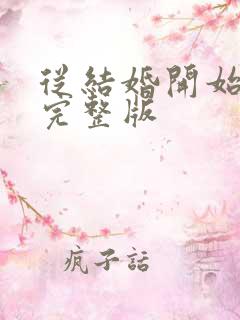 從結婚開始
完整版
瘋子話